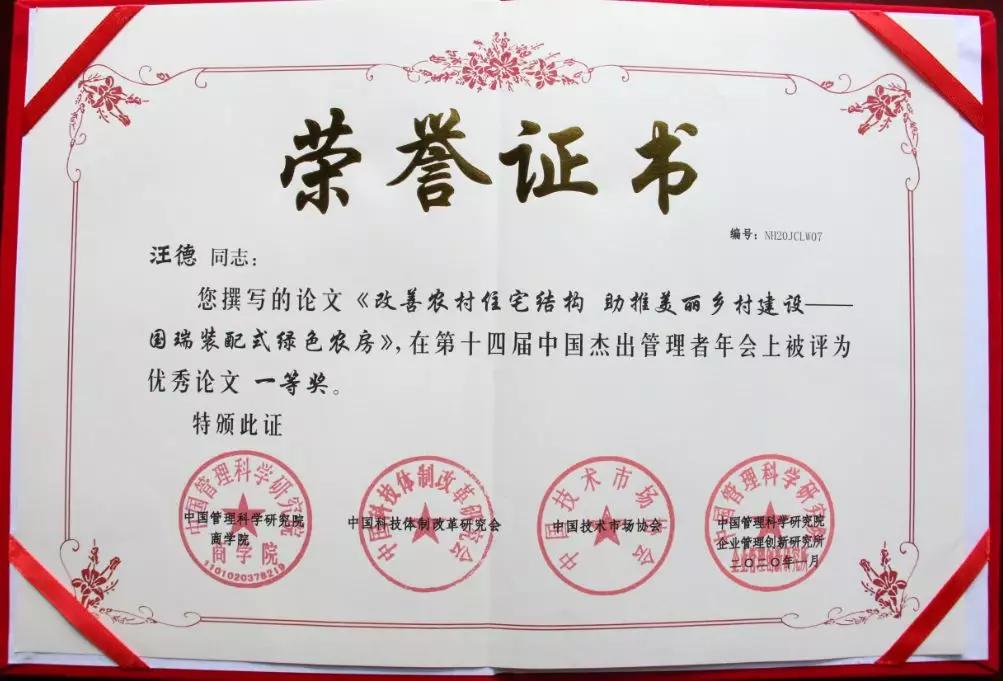 荣誉证书
编号：NH20JCLW07
汪德 同志：
您撰写的论文《改善农村住宅结构 助推美丽乡村建设——
国瑞装配式绿色农房》，在第十四届中国杰出管理者年会上被评为
优秀论文 一等奖。
特颁此证
中国管理科学研究院
商学院
中国科技体制改革研究会
中国技术市场协会
中国管理科学研究院
企业管理创新研究所
二〇二〇年一月
中国管理科学研究院
商学院
1101020378219
中国科技体制改革研究会
中国技术市场协会
中国管理科学研究院
企业管理创新研究所